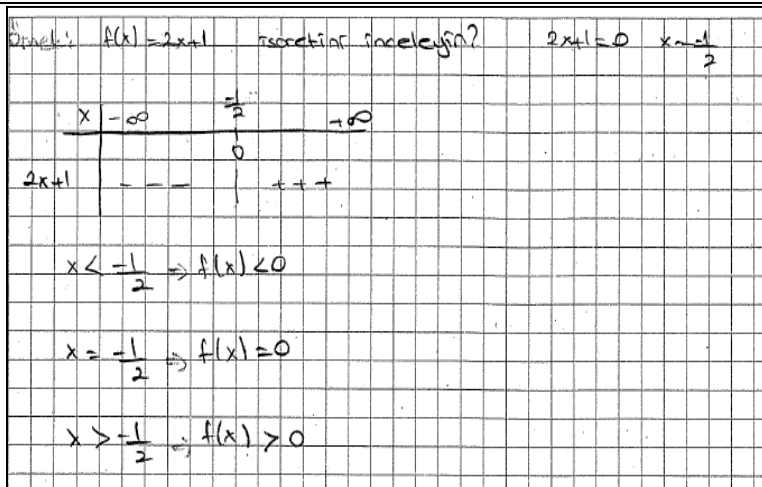 Örnek: f(x) = 2x+1 işaretini inceleyin? 2x+1=0 x=-1/2
x -∞ -1/2 +∞
0
2x+1 - - - + + +
x < -1/2 ⇒ f(x) < 0
x = -1/2 ⇒ f(x) = 0
x > -1/2 ⇒ f(x) > 0